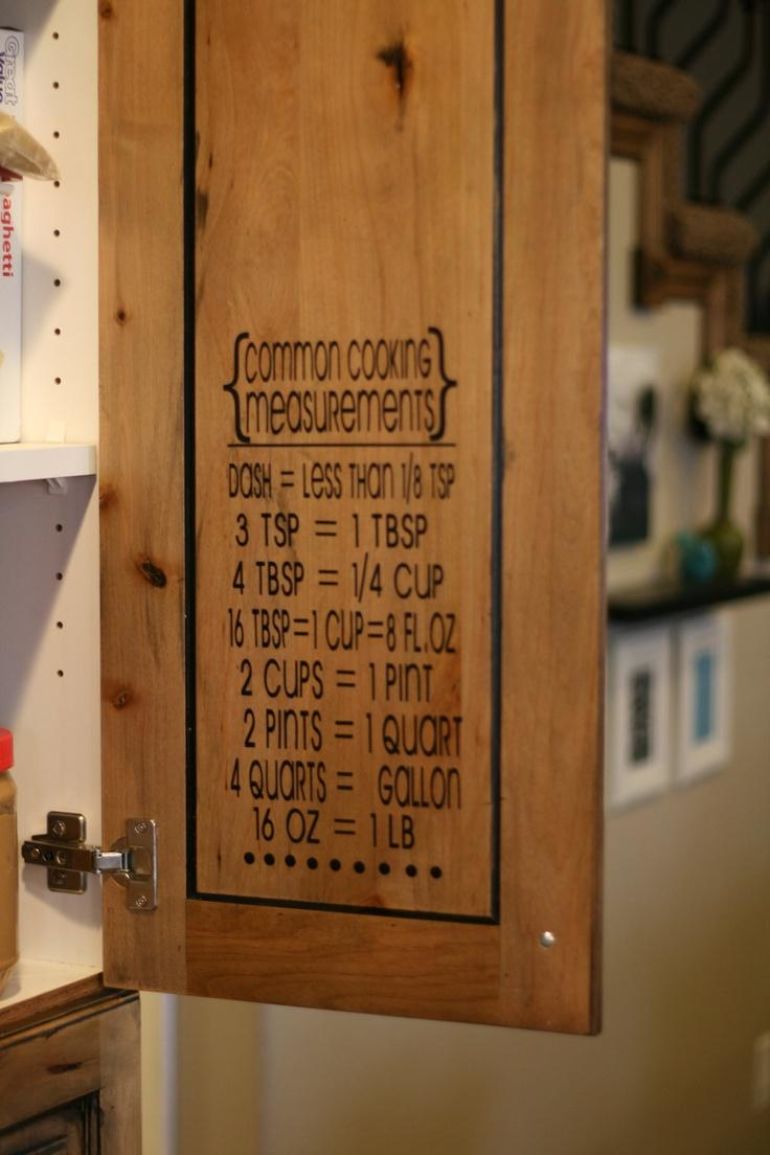 Great
Value
aghetti
{common cooking
measurements}
DASH = Less THAN 1/8 TSP
3 TSP = 1 TBSP
4 TBSP = 1/4 CUP
16 TBSP=1 CUP=8 FL.OZ
2 CUPS = 1 PINT
2 PINTS = 1 QUART
4 QUARTS = GALLON
16 OZ = 1 LB